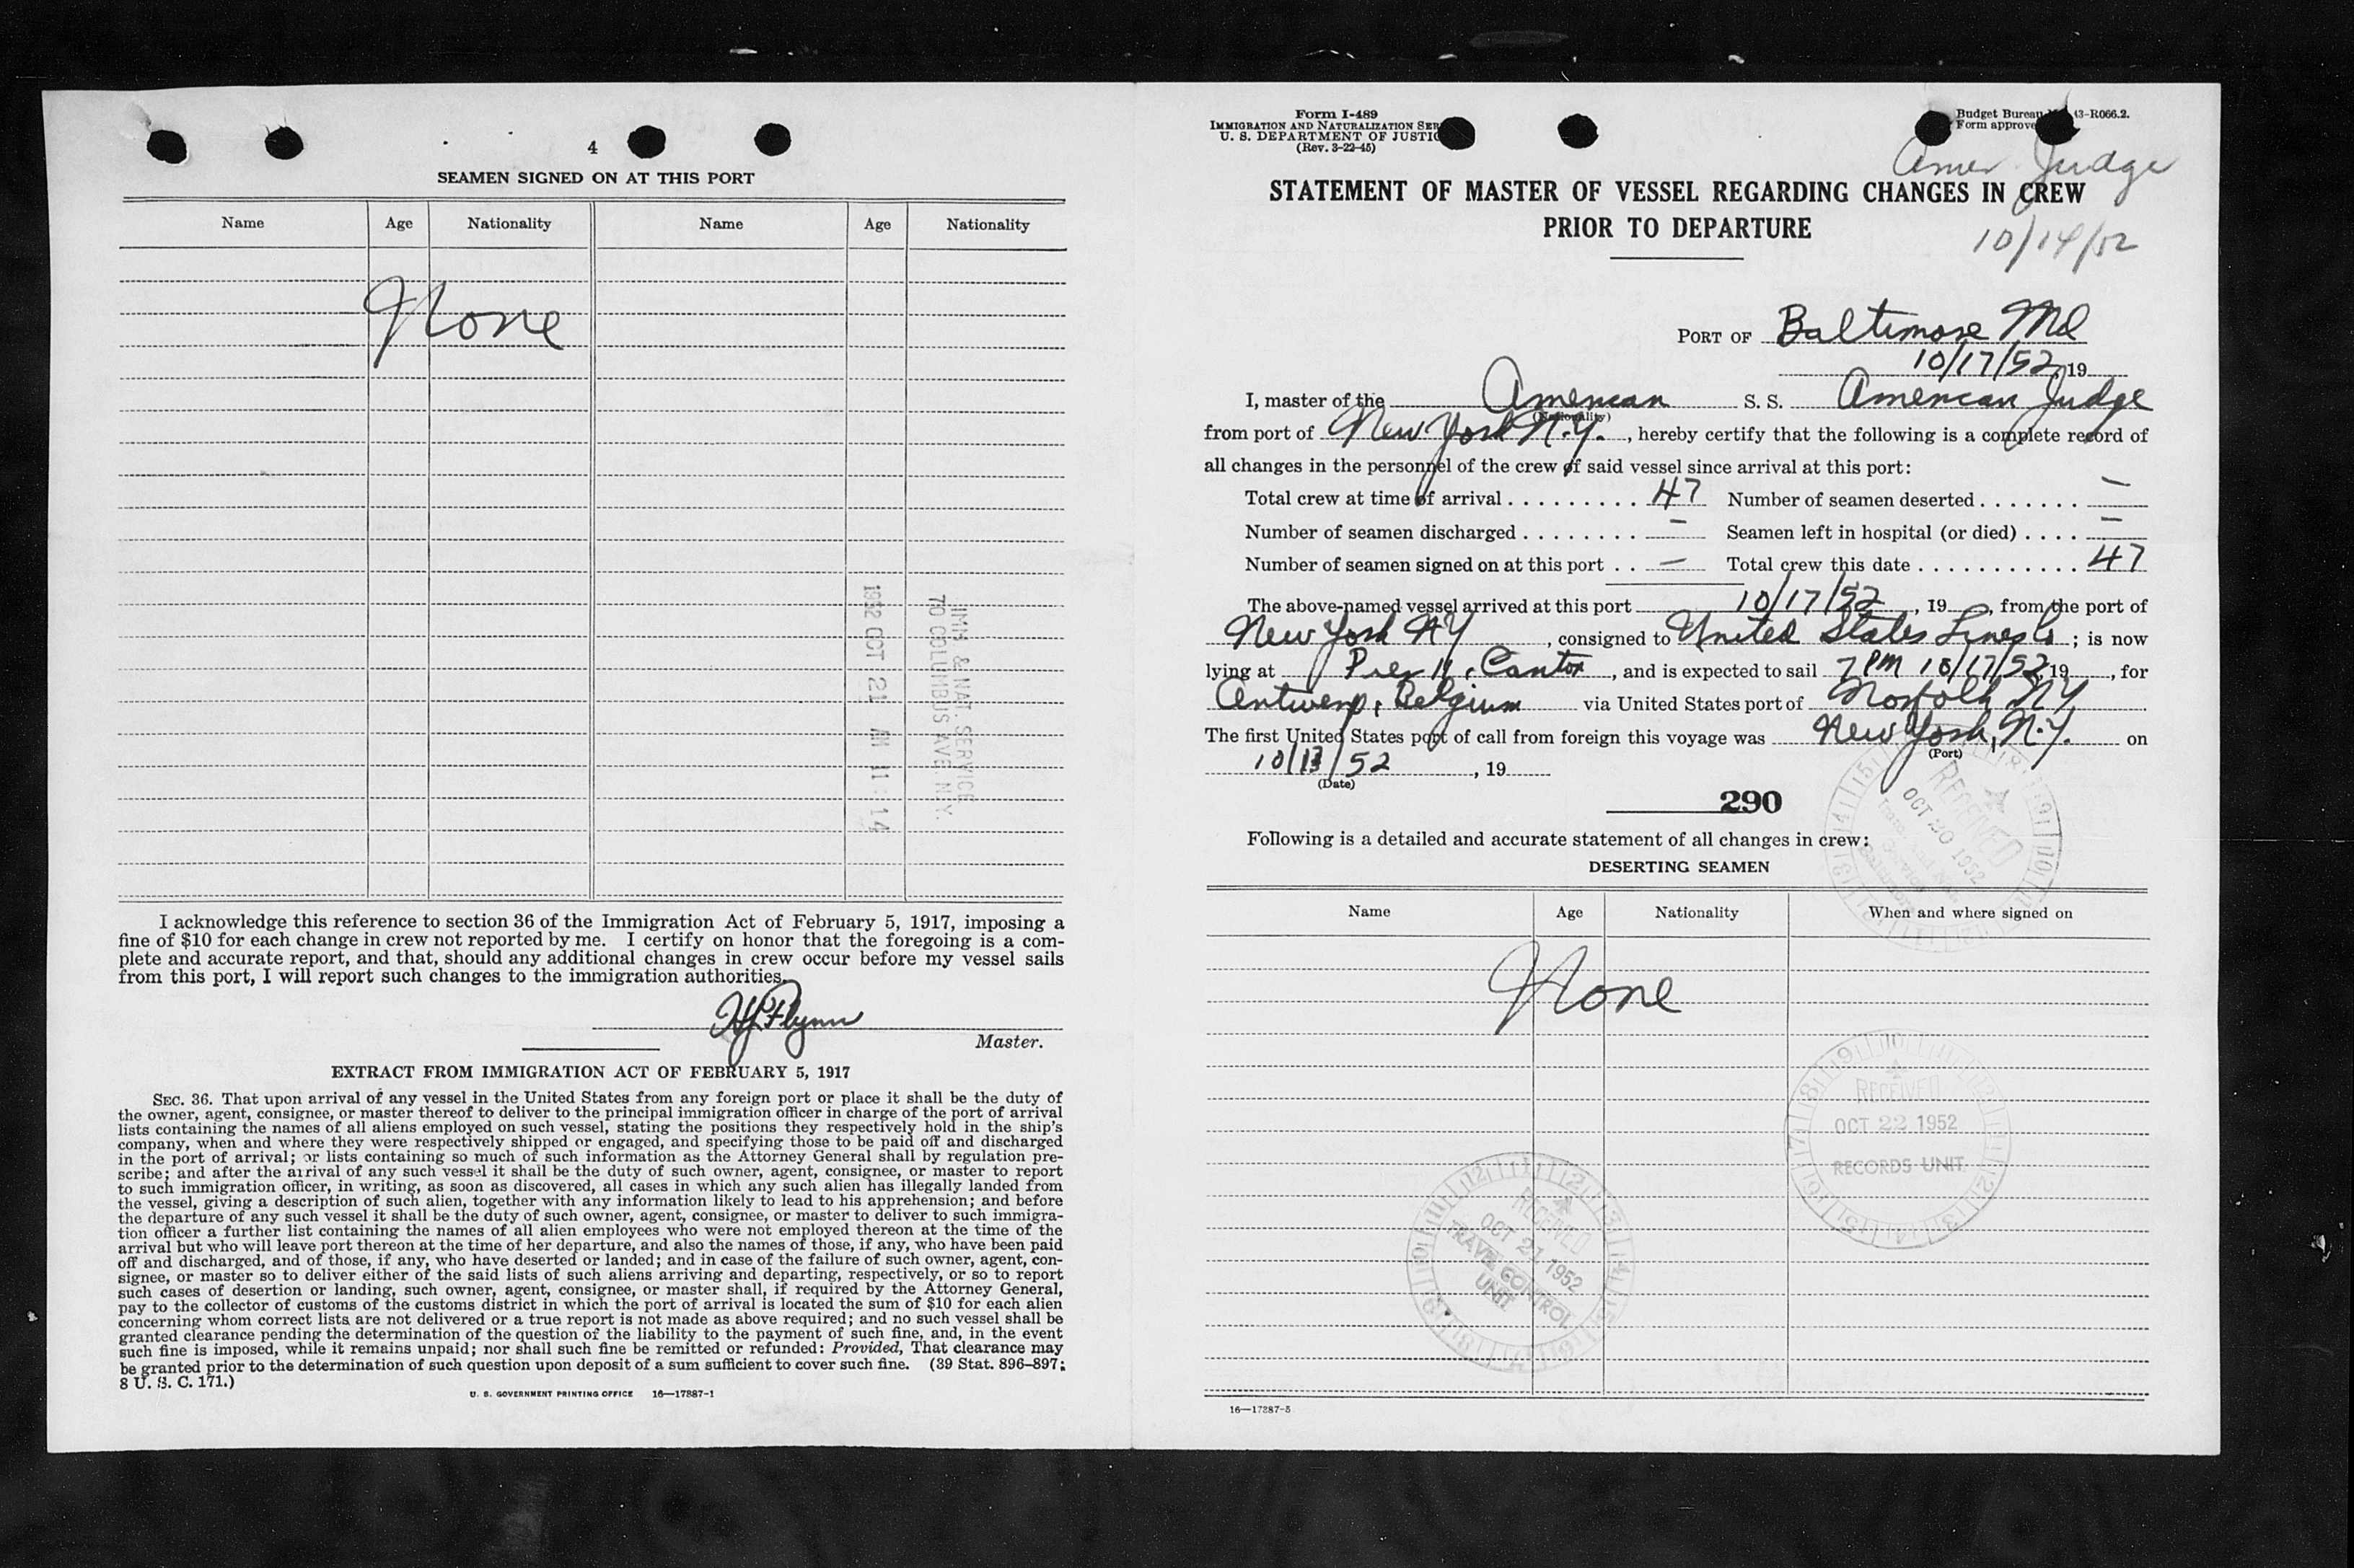 4
SEAMEN SIGNED ON AT THIS PORT
Name Age Nationality Name Age Nationality
None
1952 OCT 21 AM 11:14
IMM. & NAT. SERVICE
70 COLUMBUS AVE. N.Y.
I acknowledge this reference to section 36 of the Immigration Act of February 5, 1917, imposing a
fine of $10 for each change in crew not reported by me. I certify on honor that the foregoing is a com-
plete and accurate report, and that, should any additional changes in crew occur before my vessel sails
from this port, I will report such changes to the immigration authorities.
Flynn
Master.
EXTRACT FROM IMMIGRATION ACT OF FEBRUARY 5, 1917
SEC. 36. That upon arrival of any vessel in the United States from any foreign port or place it shall be the duty of
the owner, agent, consignee, or master thereof to deliver to the principal immigration officer in charge of the port of arrival
lists containing the names of all aliens employed on such vessel, stating the positions they respectively hold in the ship's
company, when and where they were respectively shipped or engaged, and specifying those to be paid off and discharged
in the port of arrival; or lists containing so much of such information as the Attorney General shall by regulation pre-
scribe; and after the arrival of any such vessel it shall be the duty of such owner, agent, consignee, or master to report
to such immigration officer, in writing, as soon as discovered, all cases in which any such alien has illegally landed from
the vessel, giving a description of such alien, together with any information likely to lead to his apprehension; and before
the departure of any such vessel it shall be the duty of such owner, agent, consignee, or master to deliver to such immigra-
tion officer a further list containing the names of all alien employees who were not employed thereon at the time of the
arrival but who will leave port thereon at the time of her departure, and also the names of those, if any, who have been paid
off and discharged, and of those, if any, who have deserted or landed; and in case of the failure of such owner, agent, con-
signee, or master so to deliver either of the said lists of such aliens arriving and departing, respectively, or so to report
such cases of desertion or landing, such owner, agent, consignee, or master shall, if required by the Attorney General,
pay to the collector of customs of the customs district in which the port of arrival is located the sum of $10 for each alien
concerning whom correct lists are not delivered or a true report is not made as above required; and no such vessel shall be
granted clearance pending the determination of the question of the liability to the payment of such fine, and, in the event
such fine is imposed, while it remains unpaid; nor shall such fine be remitted or refunded: Provided, That clearance may
be granted prior to the determination of such question upon deposit of a sum sufficient to cover such fine. (39 Stat. 896-897;
8 U. S. C. 171.)
U. S. GOVERNMENT PRINTING OFFICE 16—17887-1
Form I-489
IMMIGRATION AND NATURALIZATION SER
U. S. DEPARTMENT OF JUSTIC
(Rev. 3-22-45)
Budget Bureau 43-R066.2.
Form approve
Amer. Judge
10/14/52
STATEMENT OF MASTER OF VESSEL REGARDING CHANGES IN CREW
PRIOR TO DEPARTURE
PORT OF Baltimore Md
10/17/52, 19
I, master of the American S. S. American Judge
(Nationality)
from port of New York N.Y. , hereby certify that the following is a complete record of
all changes in the personnel of the crew of said vessel since arrival at this port:
Total crew at time of arrival . . . . . . . . . 47 Number of seamen deserted . . . . . . . —
Number of seamen discharged . . . . . . . . — Seamen left in hospital (or died) . . . . —
Number of seamen signed on at this port . . — Total crew this date . . . . . . . . . . . 47
The above-named vessel arrived at this port 10/17/52 , 19 , from the port of
New York NY , consigned to United States Lines Co ; is now
lying at Pier 11, Canton , and is expected to sail 7 PM 10/17/52, 19 , for
Antwerp, Belgium via United States port of Norfolk NY
The first United States port of call from foreign this voyage was New York, N.Y. on
(Port)
10/13/52 , 19
(Date)
290
RECEIVED
OCT 20 1952
Following is a detailed and accurate statement of all changes in crew:
DESERTING SEAMEN
Name Age Nationality When and where signed on
None
RECEIVED
OCT 22 1952
RECORDS UNIT
RECEIVED
OCT 21 1952
TRAVEL CONTROL
UNIT
16—17887-5